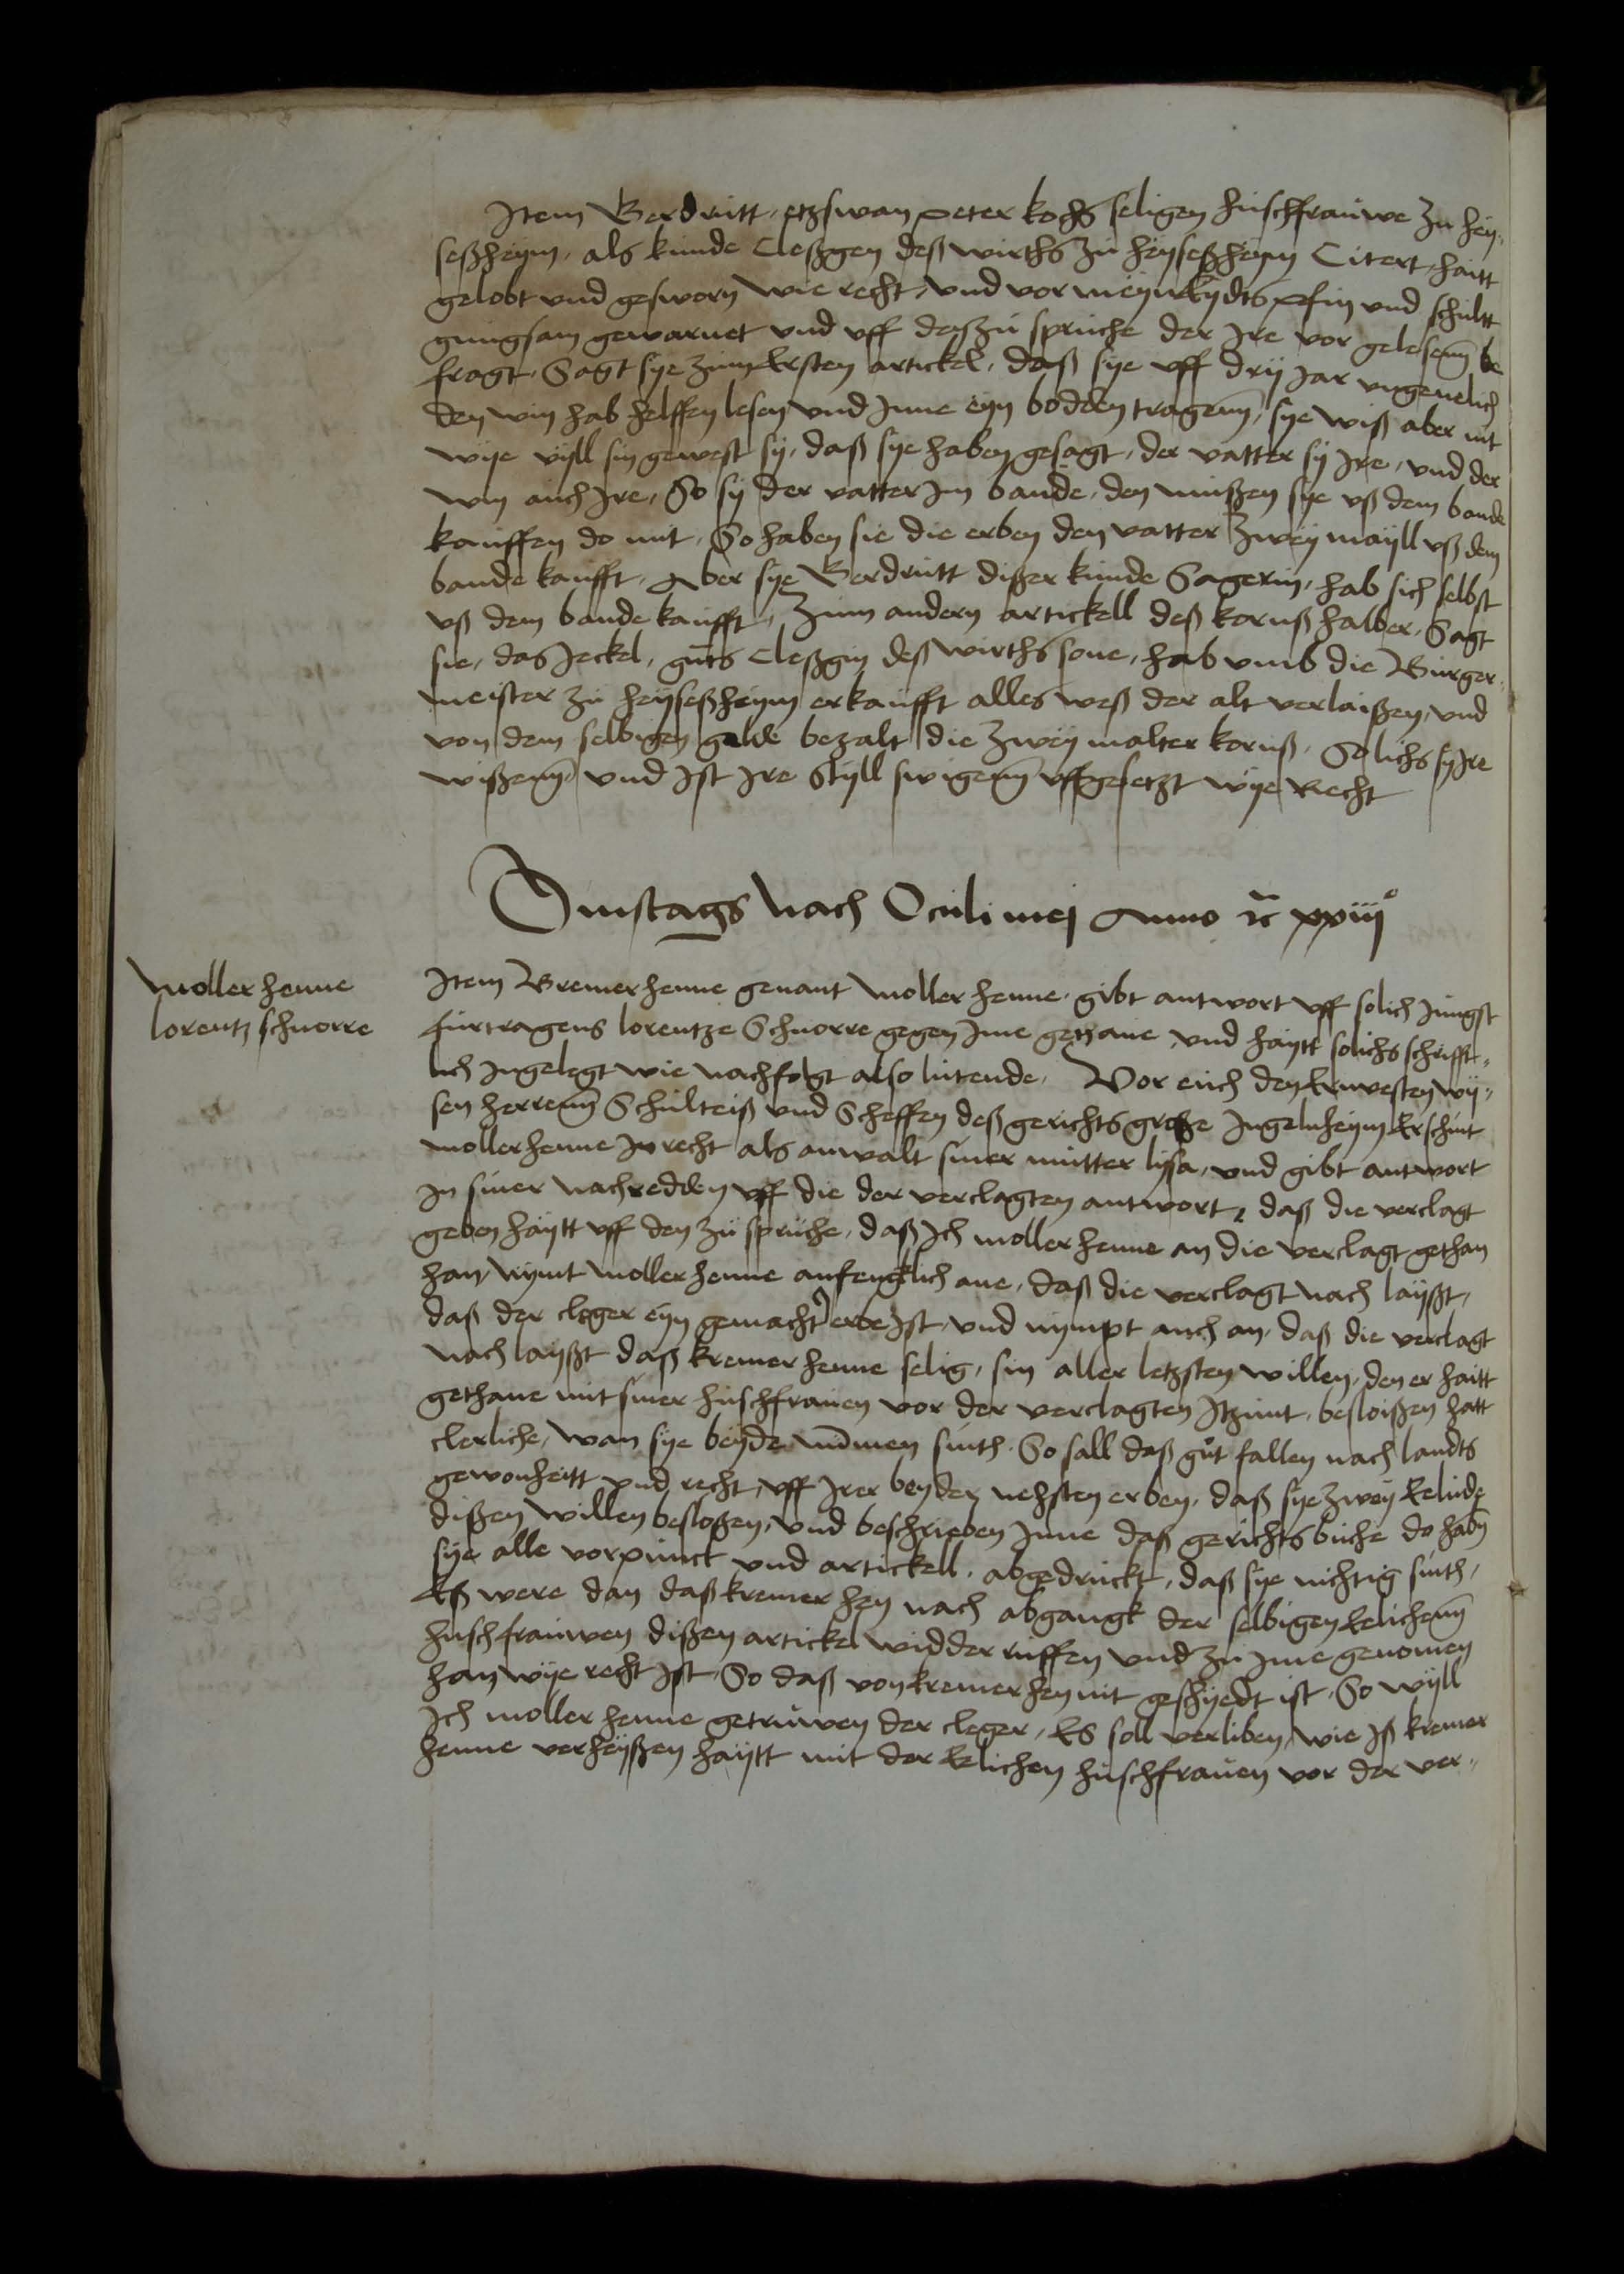 Item Gerdrutt, etzswan peter kochs seligen huschfrauwe zu hey„
seßheym, als kunde Cleßgen deß wirths zu heyseßheym Citert, haitt
gelobt und gesworn wie recht, und vor meyneydts pfin und schultt
gnungsam gewarnet und uff das zu spruche der Ire vor gelesenn be
fragt, Sagt sye zum Ersten artickel, daß sye uff dry Jar ungeuelich
den win hab helffen lesen und Inne eyn bodden tragenn, sye wiß aber nit
wye vyll sin gewest sy, daß sye haben gesagt, der vatter sy Ire, und der
win auch Ire, So sy der vatter Im bande, den mußen sye uß dem bande
kauffen do mit, So haben sie die erben den vatter zwey mayll uß dem
bande kaufft, Aber sye Gerdrutt dißer kunde Sagerin, hab sich selbst
uß dem bande kaufft, Zum andern artickell deß kornß halber, Sagt
sie, das Jeckel, guts Cleßgin deß wirths sone, hab umb die Burger„
meister zu heyseßheym erkaufft alles weß der alt verlaißen, und
von dem selbigen gelde bezalt die zwey malter kornß, Solichs sy Ire
wißenn, und Ist Ire styll swigenn uffgesetzt wye Recht
Dinstags Nach Oculi mej Anno xc xxiij°
Moller henne
lorentz schnorre
Item Bremer henne genant Moller henne, gibt antwort uff solich Jungst
furtragens lorentze Schnorre gegen Ime gethane und haytt solichs schrifft„
lich Ingelegt wie nachfolgt also lutende, Vor euch den Ernuesten wy„
sen herrenn Schulteiß und Scheffen deß gerichts große Ingelnheym Erschint
moller henne In recht als anwalt siner mutter lysa, und gibt antwort
In siner nachredden uff die der verclagten antwort, daß die verclagt
geben haytt uff den zu spruche, daß Ich moller henne an die verclagt gethan
han, Nymt moller henne anfengklich ane, daß die verclagt nach layßt,
daß der cleger eyn gemacht erbe Ist, und nympt auch an, daß die verclagt
nach layßt daß kremer henne selig, sin aller letzsten willen, den er haitt
gethane mit siner huschfrauen vor der verclagten Itzunt, besloißen hatt
clerliche, wan sye beyde nummen sinth, So sall daß gut fallen nach landts
gewonheitt und recht, uff Irer beyder nehsten erben, daß sye zwey Eelude
dißen willen besloßen, und beschrieben Inne daß gerichts buche do haben
sye alle vorpunct und artickell, abgedruckt, daß sye nichtig sinth,
Eß were dan daß kremer hen nach abgangk der selbigen Eelichenn
huschfrauwen dißen artickel widder ruffen und zu Ime genomen
han wye recht Ist, So daß von kremer hen nit geschyedt ist, So wyll
Ich moller henne getruwen der cleger, Es soll verliben, wie Iß kremer
henne verheyßen haytt mit der Eelichen huschfrauen vor der ver„